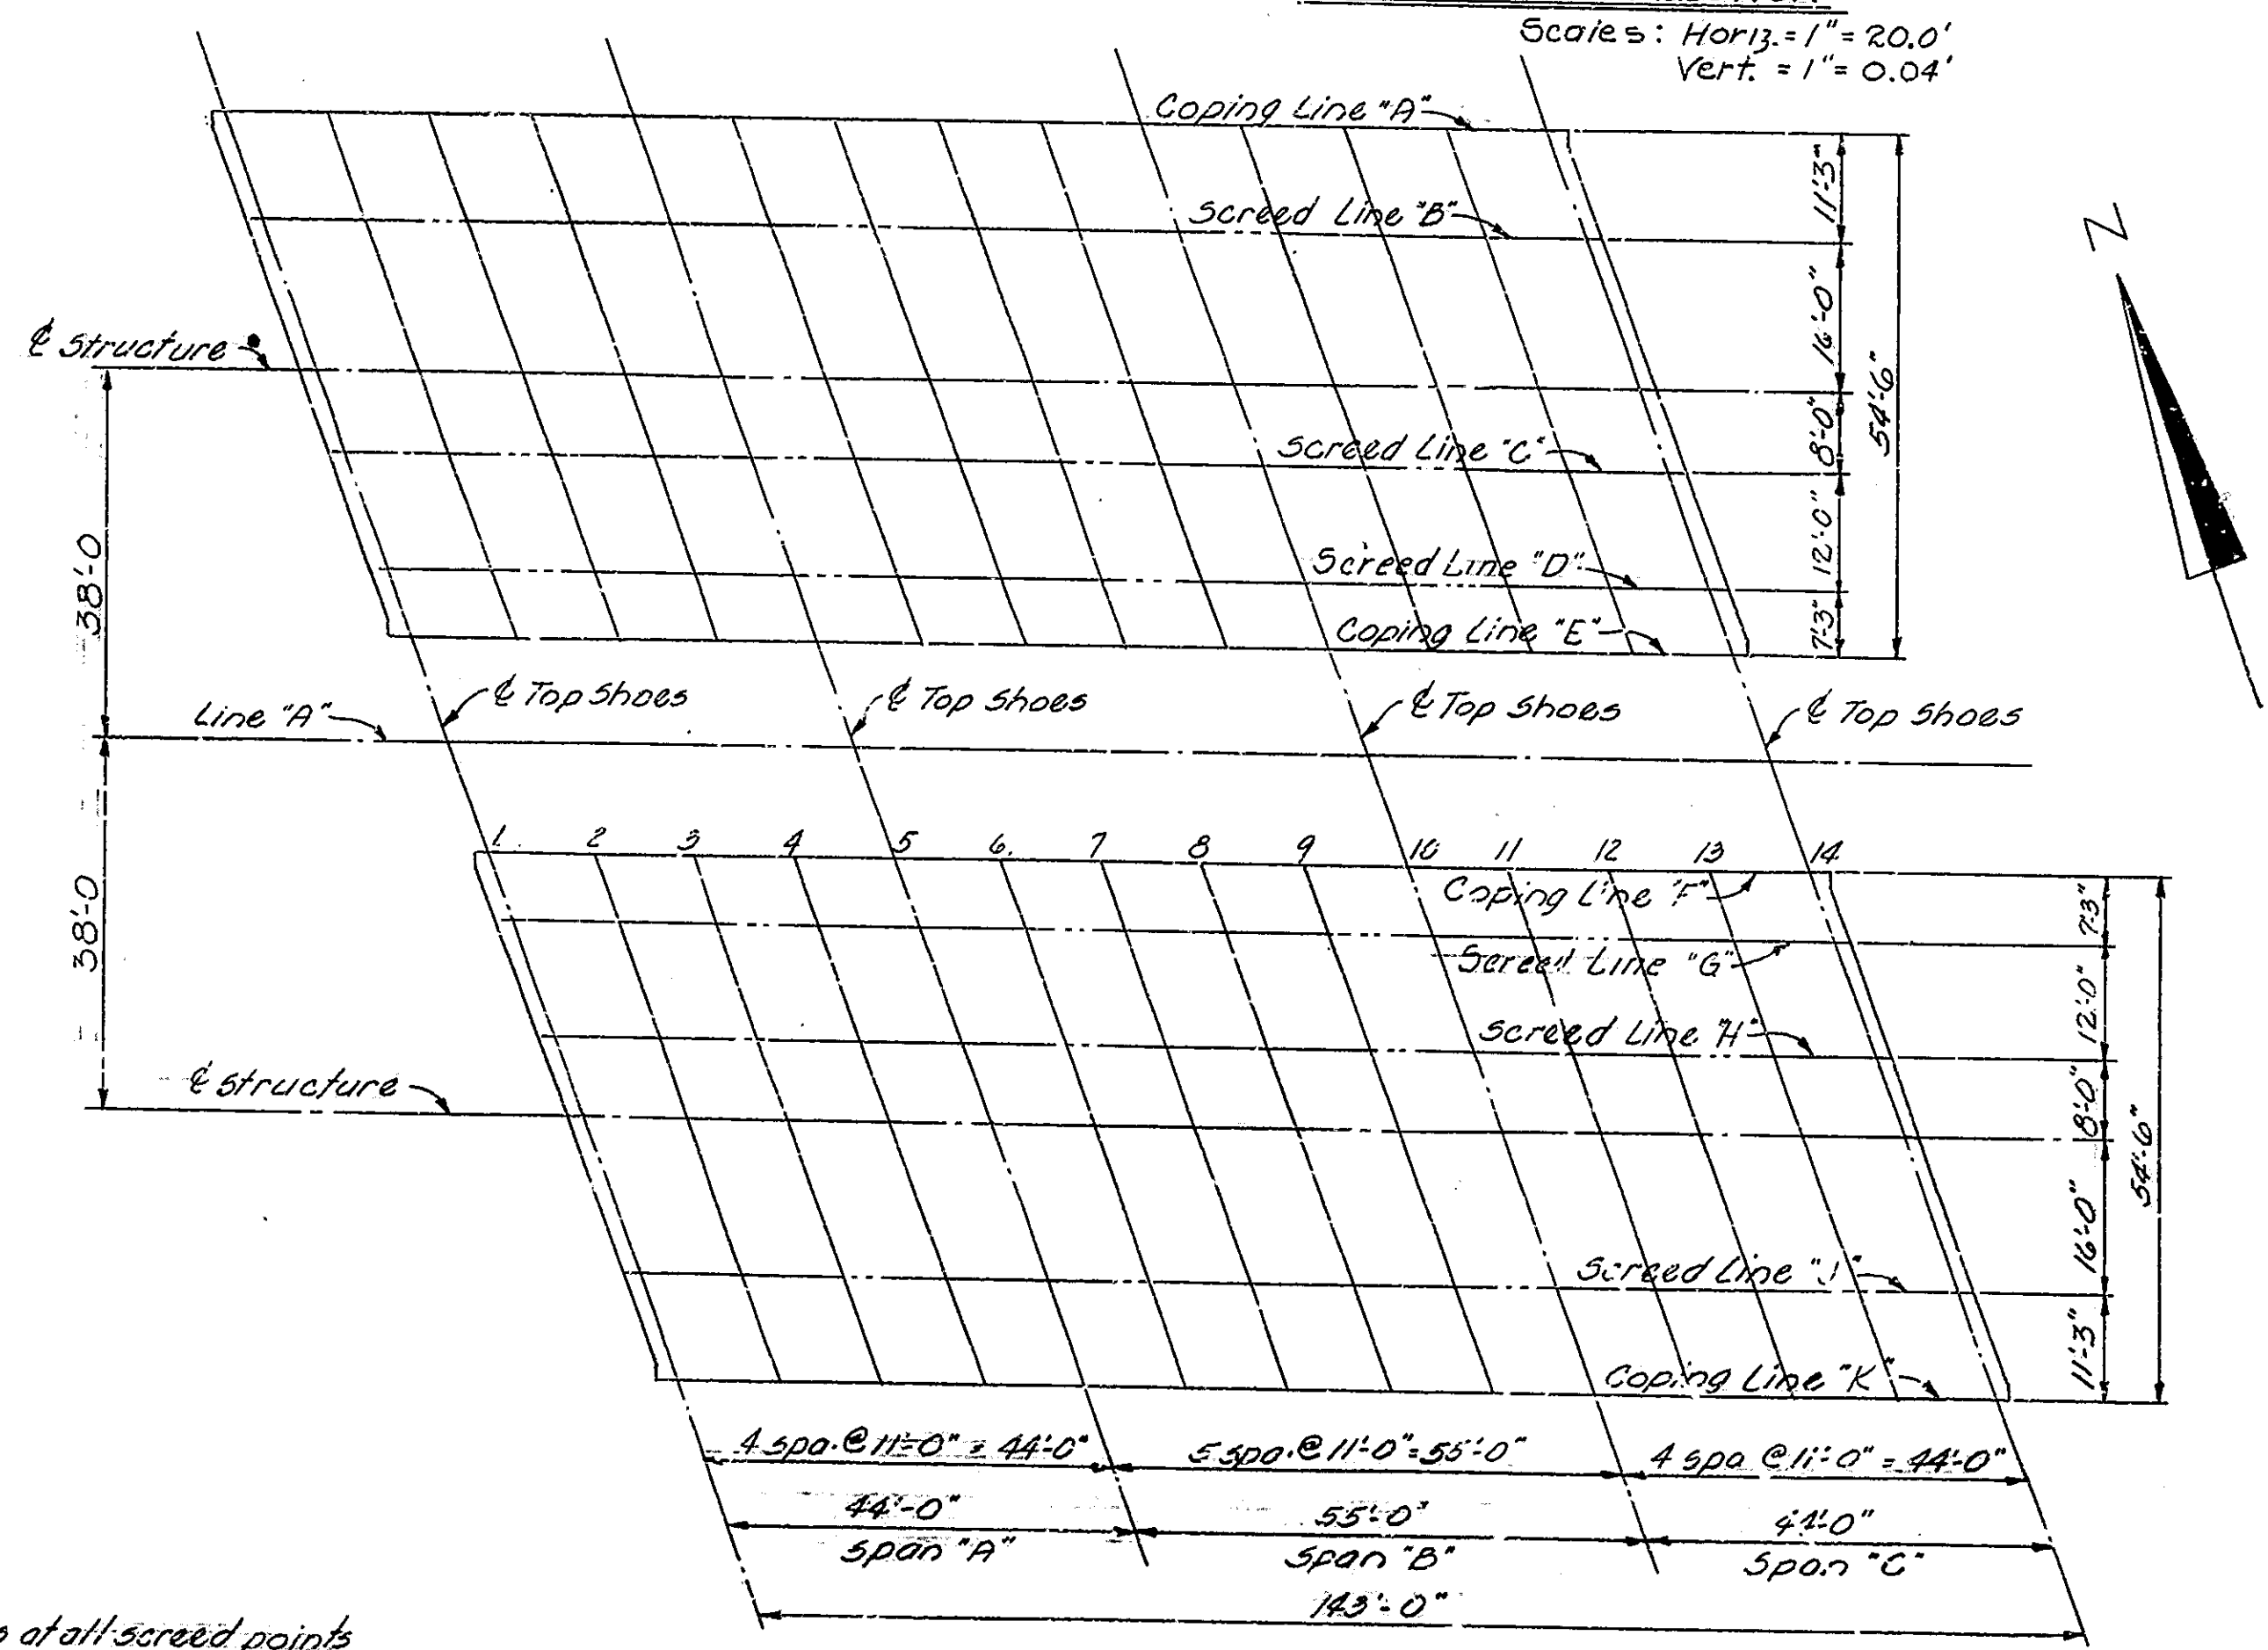 Scales: Horiz. = 1" = 20.0'
Vert. = 1" = 0.04'
Coping Line "A"
Screed Line "B"
℄ Structure
Screed Line "C"
Screed Line "D"
Coping Line "E"
11'-3"
16'-0"
8'-0"
12'-0"
7'-3"
54'-6"
N
38'-0
Line "A"
℄ Top Shoes
℄ Top Shoes
℄ Top Shoes
℄ Top Shoes
1 2 3 4 5 6 7 8 9 10 11 12 13 14
Coping Line "F"
Screed Line "G"
Screed Line "H"
38'-0
℄ Structure
Screed Line "J"
Coping Line "K"
7'-3"
12'-0"
8'-0"
16'-0"
11'-3"
54'-6"
4 spa. @ 11'-0" = 44'-0" 5 spa. @ 11'-0" = 55'-0" 4 spa @ 11'-0" = 44'-0"
44'-0" 55'-0" 44'-0"
Span "A" Span "B" Span "C"
143'-0"
at all screed points